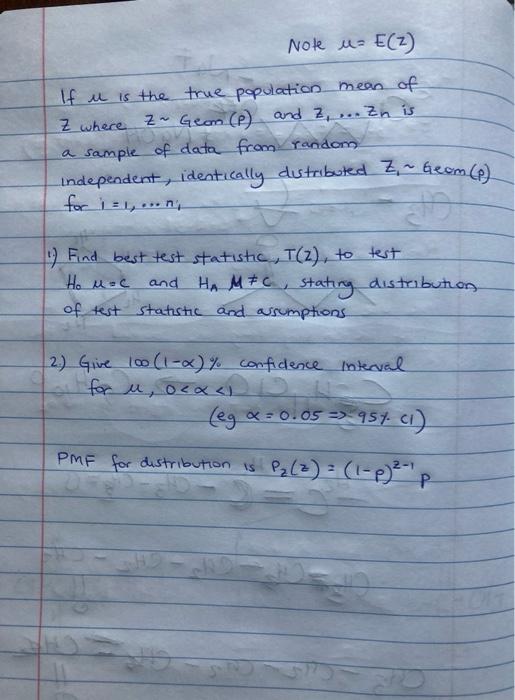 Note μ = E(Z)
If μ is the true population mean of
Z where Z ~ Geom(p) and Z₁, ... Zn is
a sample of data from random
independent, identically distributed Zᵢ ~ Geom(p)
for i = 1, ... n,
1) Find best test statistic, T(Z), to test
H₀ μ = c and Hₐ M ≠ c, stating distribution
of test statistic and assumptions
2.) Give 100(1-α)% confidence interval
for μ, 0<α<1
(eg α = 0.05 => 95% CI)
PMF for distribution is P_Z(z) = (1-p)^{z-1} p